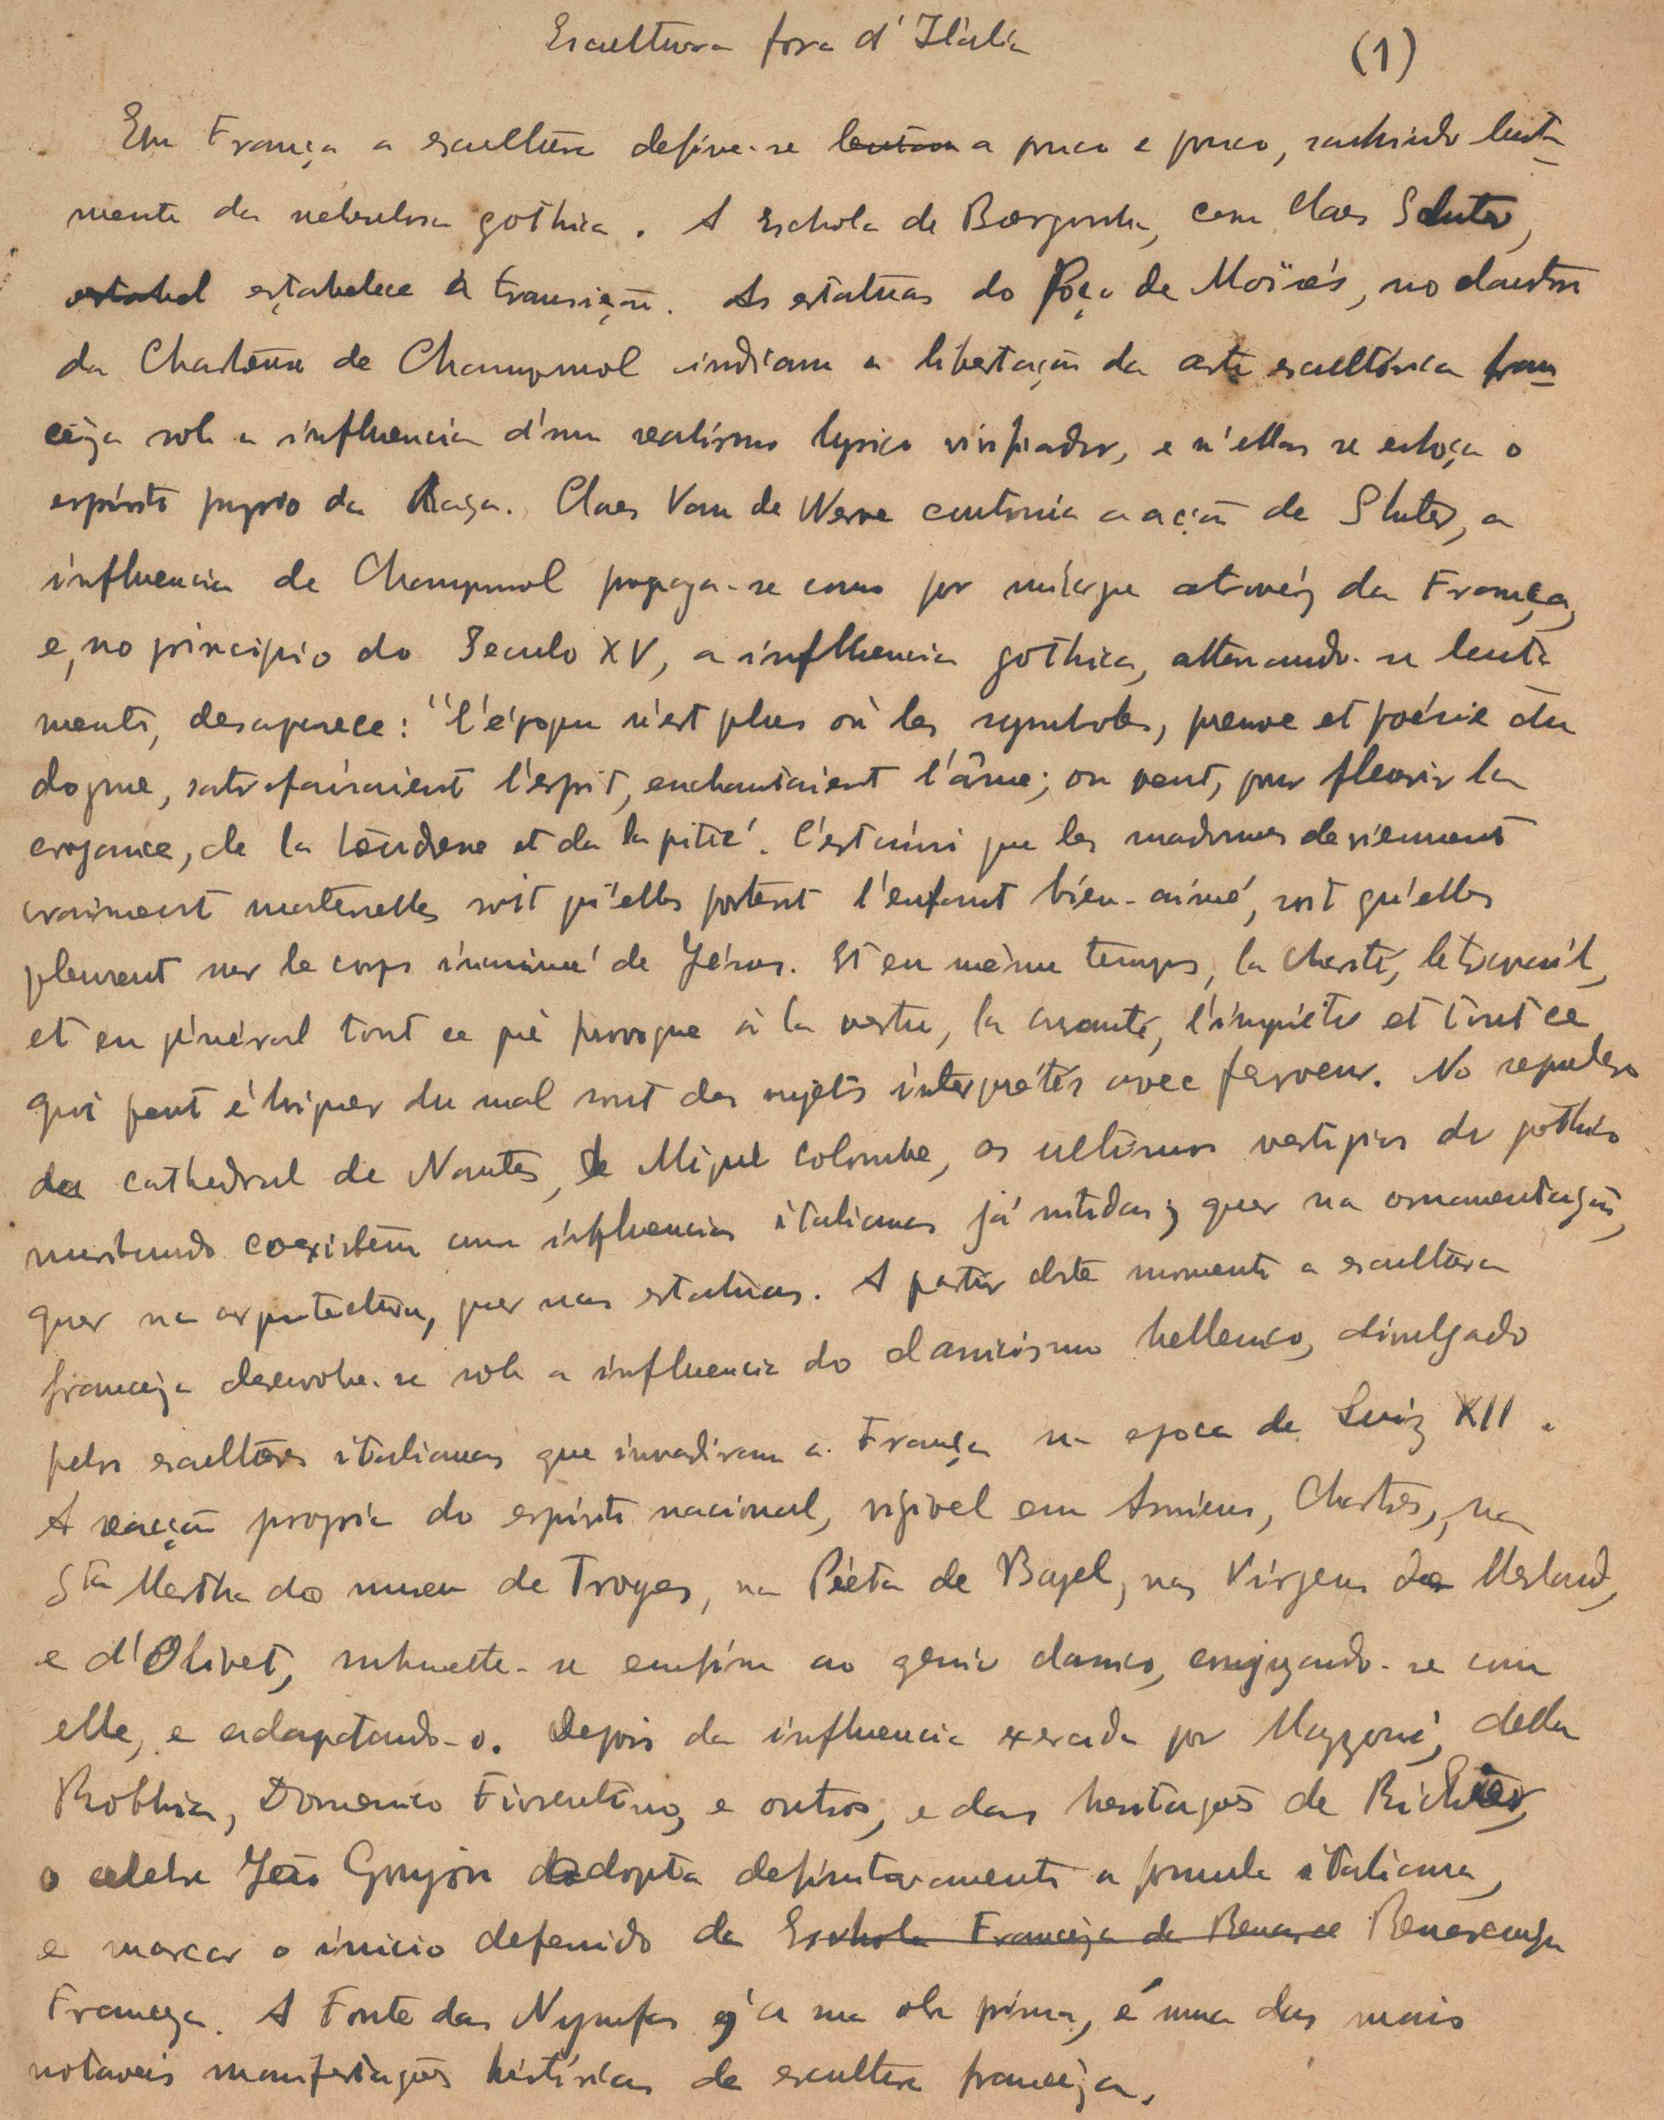 Escultura fora d'Italia (1)
Em França a escultura define-se lentam a pouco e pouco, sahindo lenta-
mente da nebulosa gothica. A Eschola de Borgonha, com Claes Sluter,
estabel estabelece a transição. As estatuas do Poço de Moïsés, no claustro
da Chartreuse de Champmol indicam a libertação da arte escultórica fran-
ceza sob a influencia d'um realismo lyrico vivificador, e n'ellas se esboça o
espirito proprio da Raça. Claes Van de Werve continúa a acção de Sluter, a
influencia de Champmol propaga-se como por milagre atravéz da França,
e, no principio do Seculo XV, a influencia gothica, attenuando-se lenta
mente, desaparece: "l'époque n'est plus où les symboles, preuve et poésie du
dogme, satisfaisaient l'esprit, enchantaient l'âme; on veut, pour fleurir la
croyance, de la tendresse et de la pitié. C'est ainsi que les madones deviennent
vraiment maternelles soit qu'elles portent l'enfant bien-aimé, soit qu'elles
pleurent sur le corps inanimé de Jésus. Et en même temps, la charité, le travail,
et en général tout ce qui provoque à la vertu, la cruauté, l'impiété et tout ce
qui peut éloigner du mal sont des sujets interprétés avec ferveur. No sepulcro
da cathedral de Nantes, de Miguel Colombe, os ultimos vestigios do gothico
moribundo coexistem com influencias italianas já nitidas, quer na ornamentação,
quer na arquitectura, quer nas estatuas. A partir deste momento a escultura
franceza desenvolve-se sob a influencia do classicismo hellenico, divulgado
pelos escultores italianos que invadiram a França na epoca de Luiz XII.
A reacção propria do espirito nacional, vizivel em Amiens, Chartres, na
Sta Martha do museu de Troyes, na Piéta de Bayel, nas Virgens de Mesland,
e d'Olivet, submette-se emfim ao genio classico, com
elle, e adaptando-o. Depois da influencia exercida por Mazzoni, della
Robbia, Domenico Fiorentino, e outros, e das hesitações de Richier,
o celebre Jean Goujon adopta definitivamente a formula italiana,
e marcar o inicio defenido da Eschola Franceza da Renasce Renascença
Franceza. A Fonte das Nymfas q' é a sua obra prima, é uma das mais
notaveis manifestações históricas da escultura franceza.